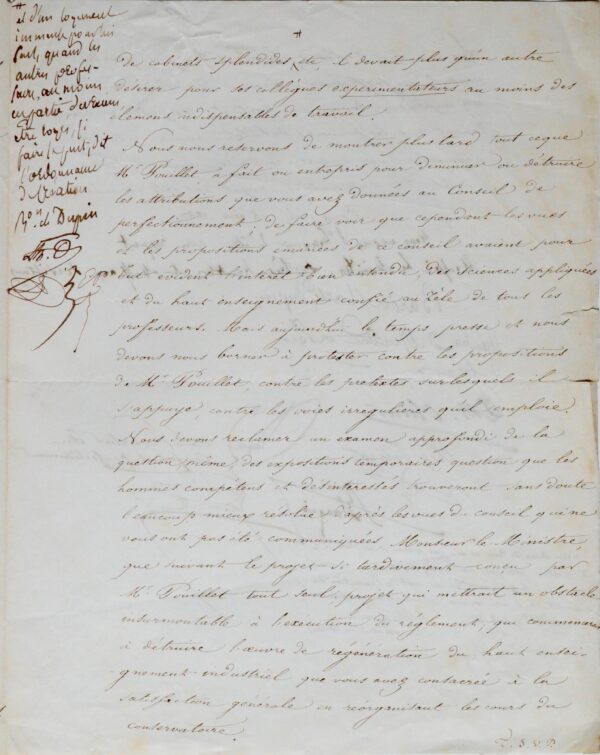 #
et d'un logement
immense pour lui
seul, quand les
autres profes-
seurs, au moins
en partie, devraient
être logés, si
faire se peut, dit
l'ordonnance
de création
Bon Ch Dupin
#
de cabinets splendides etc, il devait plus qu'un autre
désirer pour ses collègues expérimentateurs au moins des
élémens indispensables de travail.
Nous nous reservons de montrer plus tard tout ceque
Mr. Pouillet à fait ou entrepris pour diminuer ou détruire
les attributions que vous avez données au Conseil de
perfectionnement; de faire voir que cependant les vues
et les propositions émanées de ce conseil avaient pour
but évident l'intérêt bien entendu, des sciences appliquées
et du haut enseignement confié au zèle de tous les
professeurs. Mais aujourd'hui le temps presse et nous
devons nous borner à protester contre les propositions
de Mr. Pouillet, contre les prétextes sur lesquels il
s'appuye, contre les voies irregulieres qu'il emploie.
Nous devons réclamer un examen approfondi de la
question même, des expositions temporaires question que les
hommes compétens et désintéressés trouveront sans doute
beaucoup mieux résolue d'après les vues du conseil qui ne
vous ont pas été communiquées Monsieur le Ministre,
que suivant le projet si tardivement conçu par
Mr. Pouillet tout seul, projet qui mettrait un obstacle
insurmontable à l'exécution du réglement; qui commencerait
à détruire l'œuvre de régénération du haut ensei-
gnement industriel que vous avez consacrée à la
satisfaction générale en réorganisant les cours du
conservatoire.
T. S. V. P.